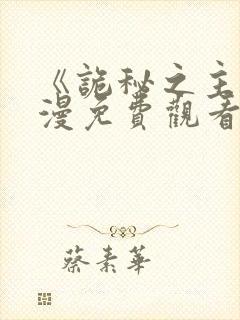 《詭秘之主
漫免費觀看
蔡素華